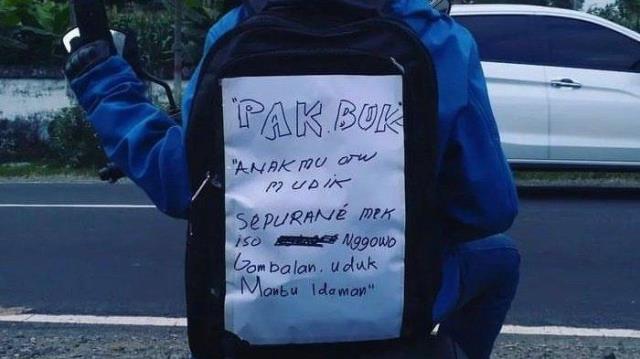 "PAK BUK"
"ANAKMU OTW
MUDIK
SEPURANÉ MEK
iso Nggowo
Gombalan. uduk
Mantu Idaman"